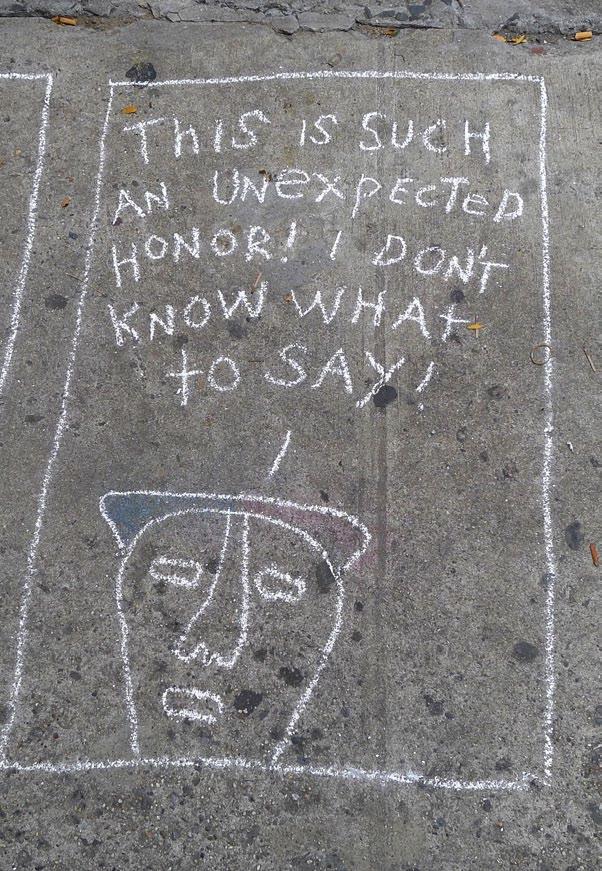 ThIS IS SUCH
AN UNeXPECTeD
HONOR! I DON'T
KNOW WHAt
tO SAY!